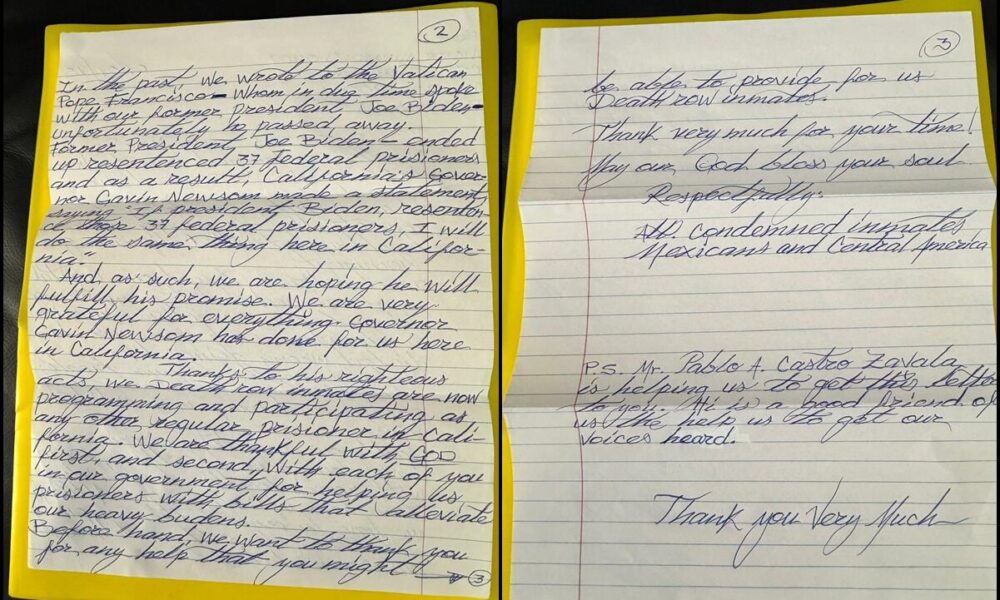 2
In the past, we wrote to the Vatican
Pope Francisco - Whom in due time spoke
with our former president Joe Biden -
unfortunately he passed away.
Former President, Joe Biden - ended
up resentenced 37 federal prisioners
and as a result, California's Gover-
nor Gavin Newsom made a statement,
saying "If president Biden, resenten-
ced, those 37 federal prisioners, I will
do the same thing here in Califor-
nia."
And, as such, we are hoping he will
fulfill his promise. We are very
grateful for everything Governor
Gavin Newsom has done for us here
in California.
Thanks to his righteous
acts, we Death row inmates are now
programming and participating as
any other regular prisioner in Cali-
fornia. We are thankful with GOD
first, and second, with each of you
in our government for helping us
prisioners with bills that alleviate
our heavy budens.
Before hand, we want to thank you
for any help that you might → 3
3
be able to provide for us
Death row inmates.
Thank very much for your time!
May our God bless your soul
Respectfully:
All condemned inmates
Mexicans and Central America
P.S. Mr. Pablo A. Castro Zavala,
is helping us to get this letter
to you. He is a good friend of
us the help us to get our
voices heard.
Thank you Very Much